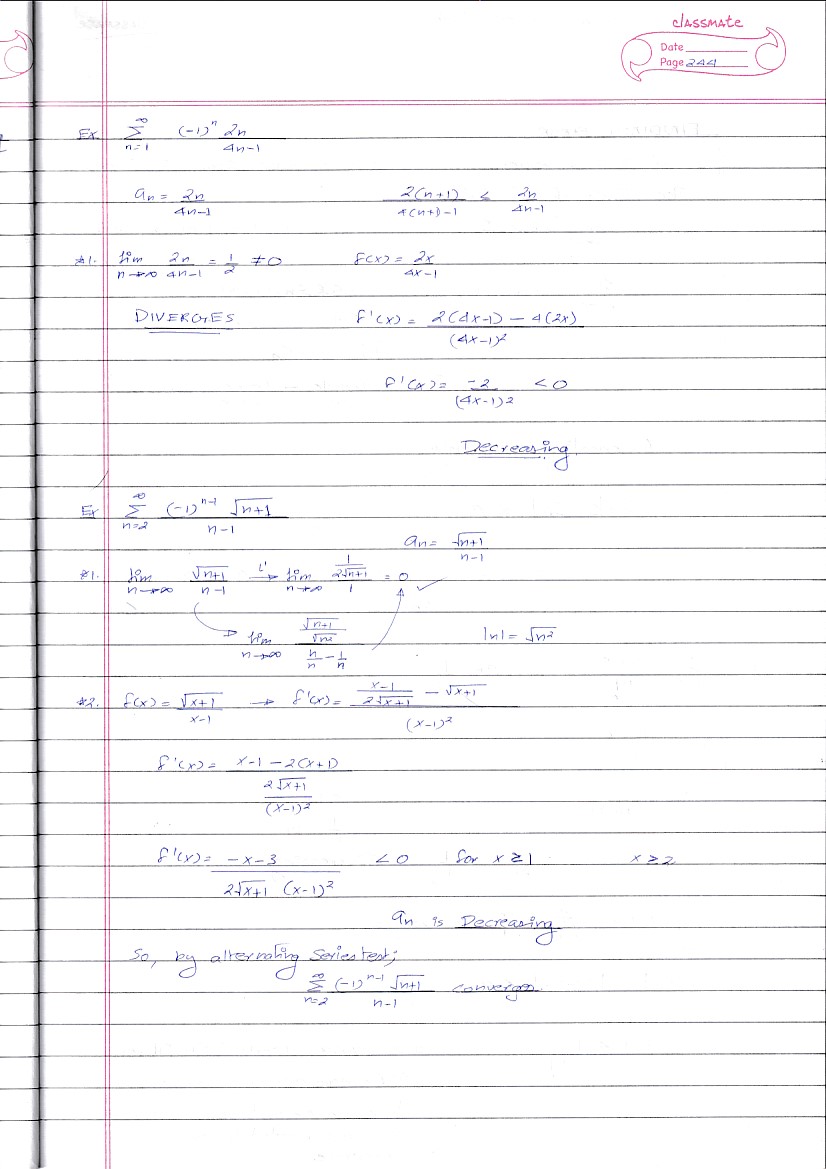 classmate
Date
Page 244
Ex. ∞ Σ n=1 (-1)^n 2n / 4n-1
an = 2n / 4n-1    2(n+1) / 4(n+1)-1 < 2n / 4n-1
#1. lim n→∞ 2n / 4n-1 = 1/2 ≠ 0    f(x) = 2x / 4x-1
DIVERGES    f'(x) = 2(4x-1) - 4(2x) / (4x-1)^2
f'(x) = -2 / (4x-1)2 < 0
Decreasing
Ex ∞ Σ n=2 (-1)^n-1 √n+1 / n-1
an = √n+1 / n-1
#1. lim n→∞ √n+1 / n-1 L' → lim n→∞ 1 / 2√n+1 / 1 = 0 ✓
→ lim n→∞ √n+1 / √n2 / n/n - 1/n    |n| = √n2
#2. f(x) = √x+1 / x-1 → f'(x) = x-1 / 2√x+1 - √x+1 / (x-1)2
f'(x) = x-1-2(x+1) / 2√x+1 / (x-1)2
f'(x) = -x-3 / 2√x+1 (x-1)2 < 0 for x ≥ 1    x ≥ 2
an is Decreasing
So, by alternating series test;
∞ Σ n=2 (-1)^n-1 √n+1 / n-1 converges.